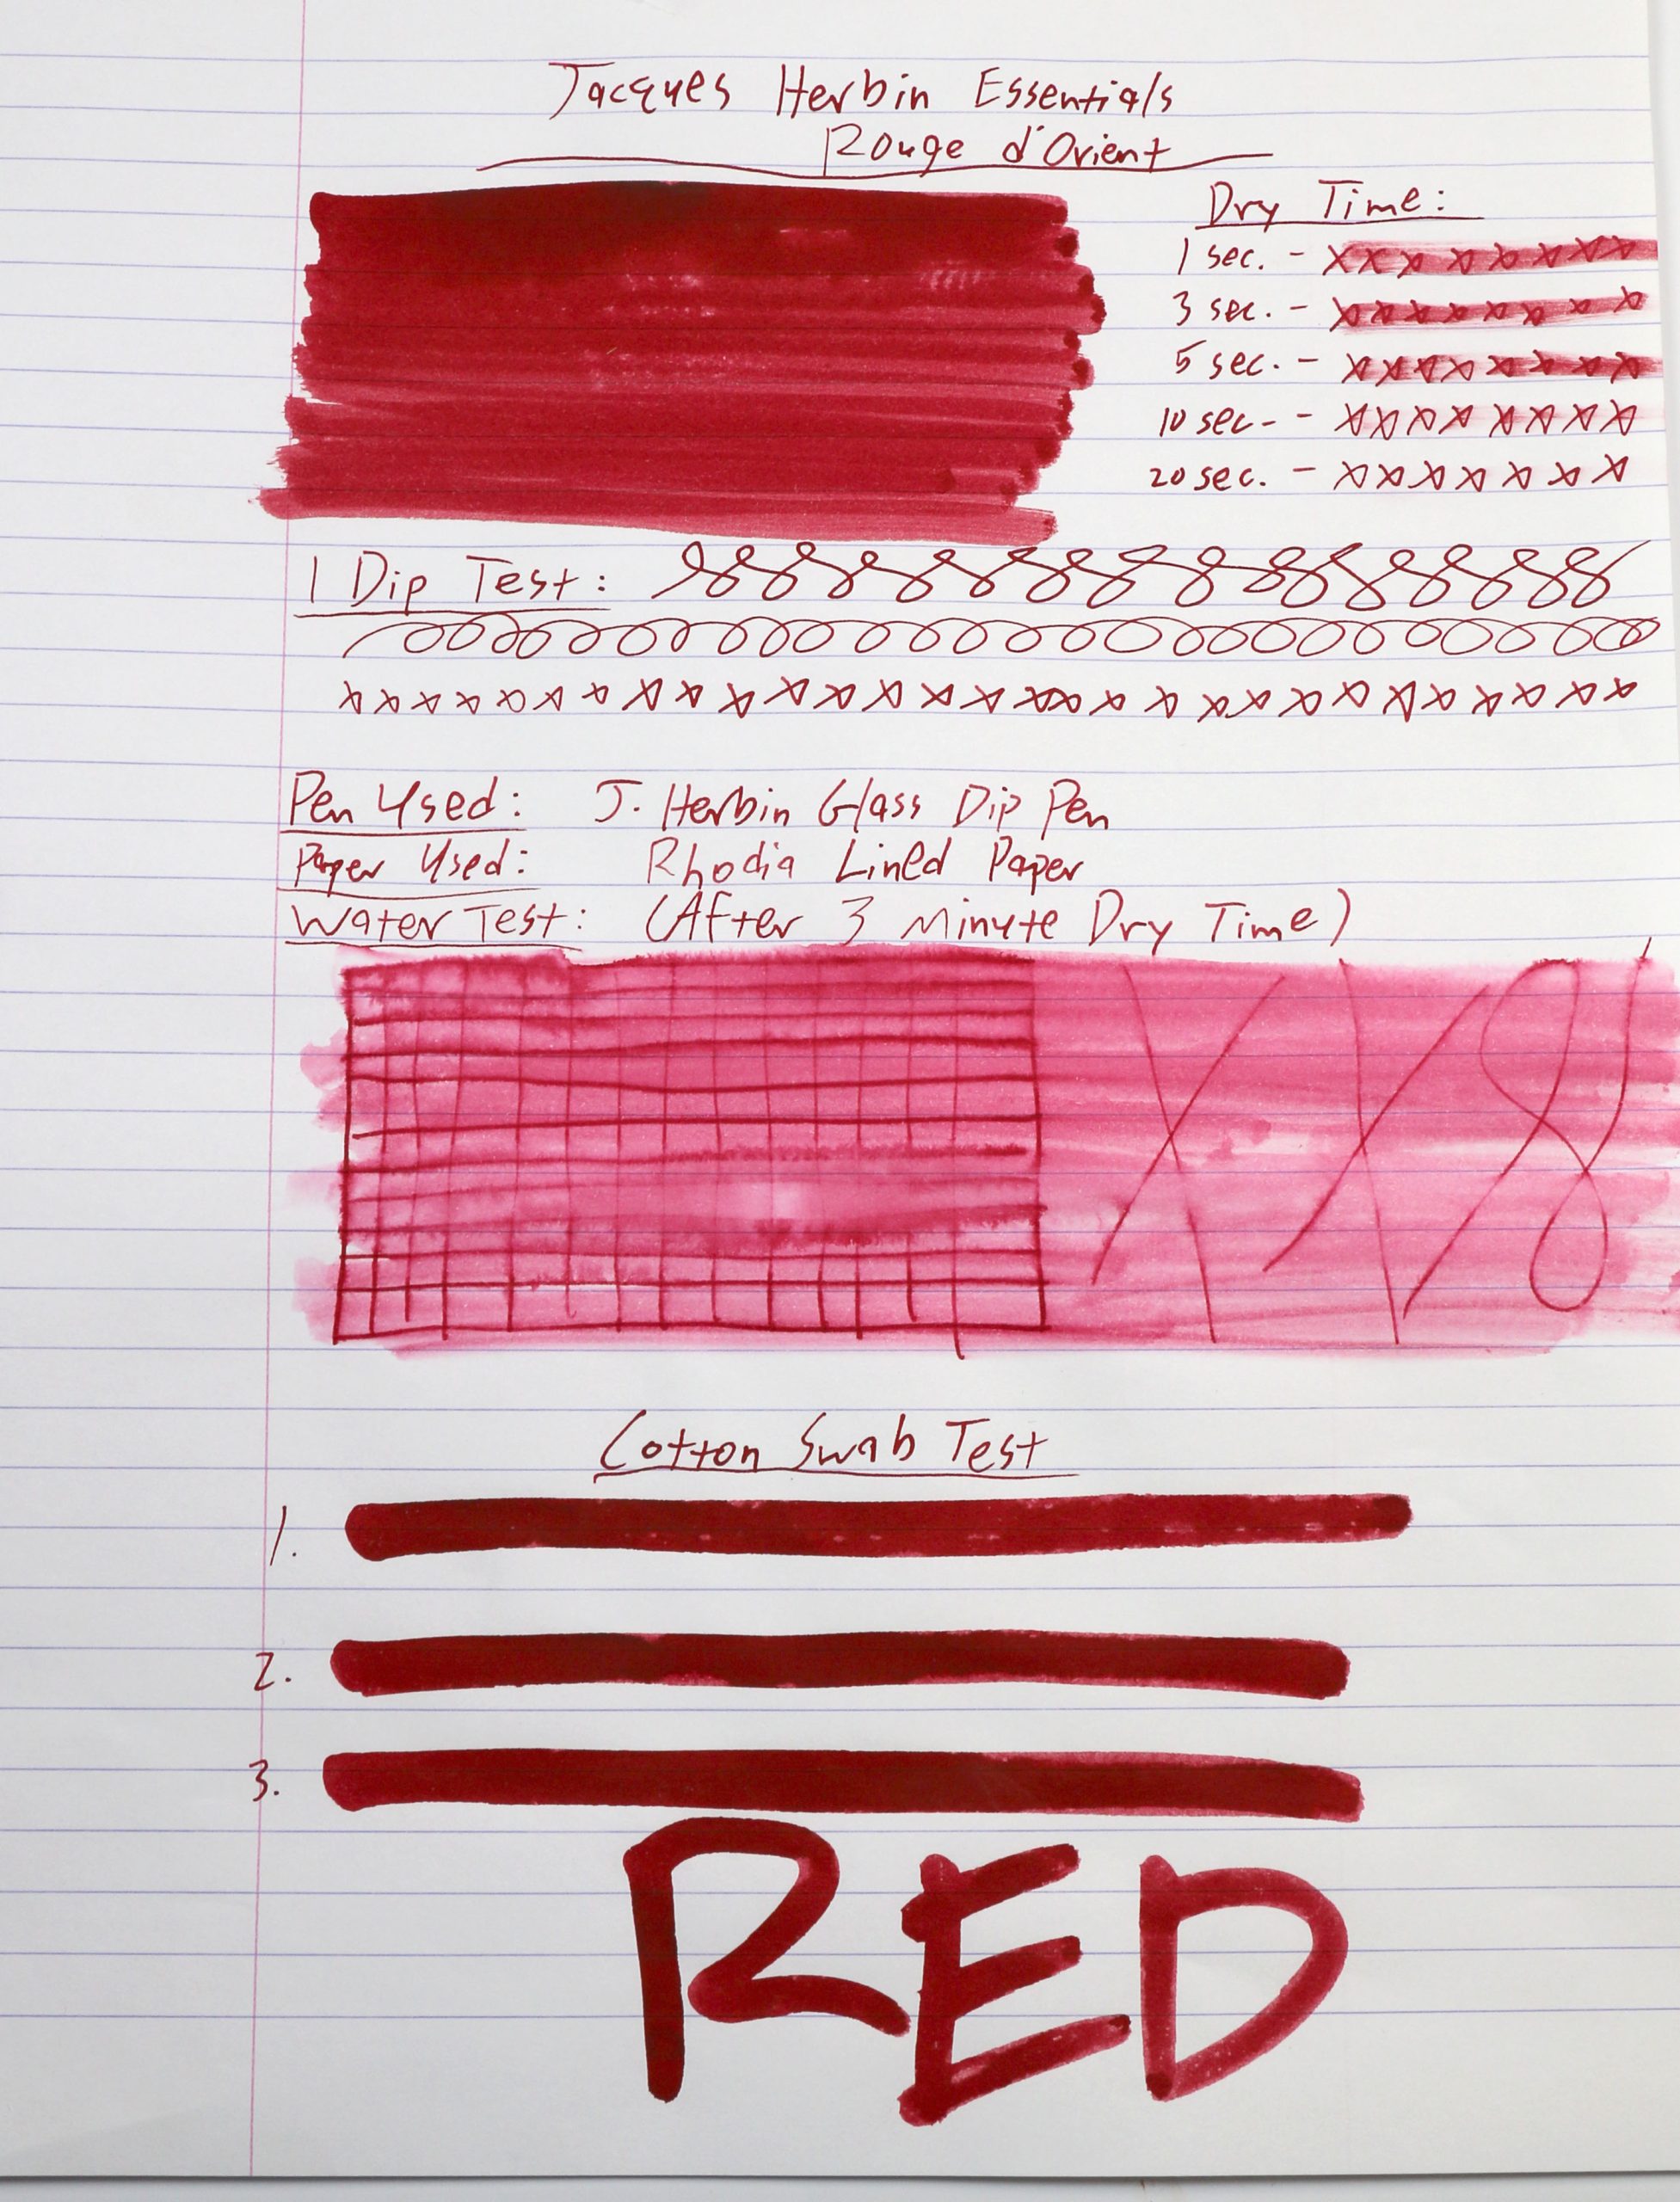 Jacques Herbin Essentials
Rouge d'Orient
Dry Time:
1 sec. - xxxxxxxxx
3 sec. - xxxxxxxx
5 sec. - xxxxxxxx
10 sec. - xxxxxxxx
20 sec. - xxxxxxx
1 Dip Test:
xxxxxxxxxxxxxxxxxxxxxxxxxxxxx
Pen Used: J. Herbin Glass Dip Pen
Paper Used: Rhodia Lined Paper
Water Test: (After 3 Minute Dry Time)
X X 8
Cotton Swab Test
1.
2.
3.
RED